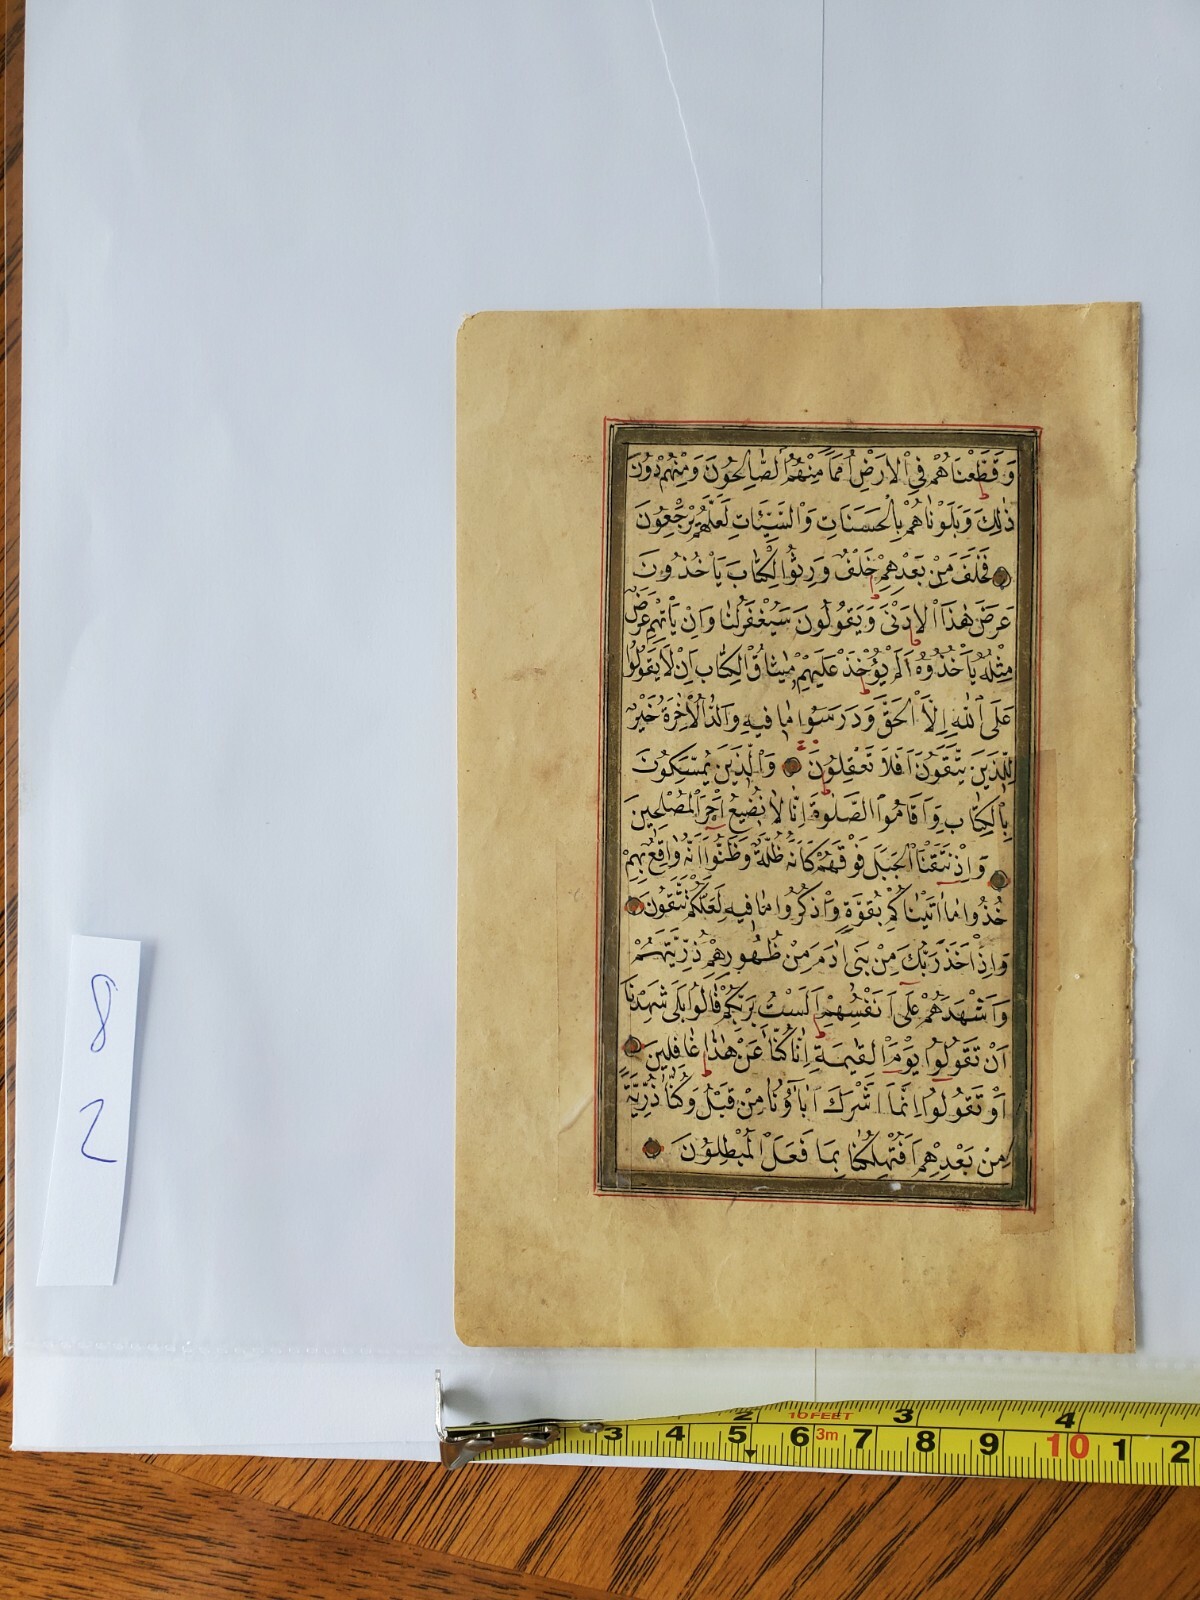 وَقَطَّعْنَاهُمْ فِي الْاَرْضِ اُمَمًا مِنْهُمُ الصَّالِحُونَ وَمِنْهُمْ دُونَ
ذٰلِكَ وَبَلَوْنَاهُمْ بِالْحَسَنَاتِ وَالسَّيِّئَاتِ لَعَلَّهُمْ يَرْجِعُونَ
فَخَلَفَ مِنْ بَعْدِهِمْ خَلْفٌ وَرِثُوا الْكِتَابَ يَأْخُذُونَ
عَرَضَ هٰذَا الْاَدْنٰى وَيَقُولُونَ سَيُغْفَرُ لَنَا وَاِنْ يَأْتِهِمْ عَرَضٌ
مِثْلُهُ يَأْخُذُوهُ اَلَمْ يُؤْخَذْ عَلَيْهِمْ مِيثَاقُ الْكِتَابِ اَنْ لَا يَقُولُوا
عَلَى اللّٰهِ اِلَّا الْحَقَّ وَدَرَسُوا مَا فِيهِ وَالدَّارُ الْاٰخِرَةُ خَيْرٌ
لِلَّذِينَ يَتَّقُونَ اَفَلَا تَعْقِلُونَ وَالَّذِينَ يُمَسِّكُونَ
بِالْكِتَابِ وَاَقَامُوا الصَّلٰوةَ اِنَّا لَا نُضِيعُ اَجْرَ الْمُصْلِحِينَ
وَاِذْ نَتَقْنَا الْجَبَلَ فَوْقَهُمْ كَاَنَّهُ ظُلَّةٌ وَظَنُّوا اَنَّهُ وَاقِعٌ بِهِمْ
خُذُوا مَا اٰتَيْنَاكُمْ بِقُوَّةٍ وَاذْكُرُوا مَا فِيهِ لَعَلَّكُمْ تَتَّقُونَ
وَاِذْ اَخَذَ رَبُّكَ مِنْ بَنِي اٰدَمَ مِنْ ظُهُورِهِمْ ذُرِّيَّتَهُمْ
وَاَشْهَدَهُمْ عَلٰى اَنْفُسِهِمْ اَلَسْتُ بِرَبِّكُمْ قَالُوا بَلٰى شَهِدْنَا
اَنْ تَقُولُوا يَوْمَ الْقِيٰمَةِ اِنَّا كُنَّا عَنْ هٰذَا غَافِلِينَ
اَوْ تَقُولُوا اِنَّمَا اَشْرَكَ اٰبَاؤُنَا مِنْ قَبْلُ وَكُنَّا ذُرِّيَّةً
مِنْ بَعْدِهِمْ اَفَتُهْلِكُنَا بِمَا فَعَلَ الْمُبْطِلُونَ
8
2
2 10 FEET 3 4
3 4 5 6 3m 7 8 9 10 1 2